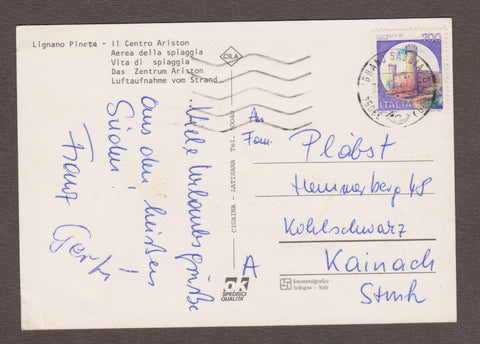 Lignano Pineta - Il Centro Ariston
Aerea della spiaggia
Vita di spiaggia
Das Zentrum Ariston
Luftaufnahme vom Strand
CILA
700
ITALIA
33054
Viele Urlaubsgrüße
aus dem heißen
Süden!
Franz
An
Fam.
Plöbst
Hemmerberg 48
Kohlschwarz
Kainach
Stmk
A
CIGAINA - LATISANA Tel.
ok
SPEDISCI
QUALITÀ
fotometalgrafica
bologna - italy